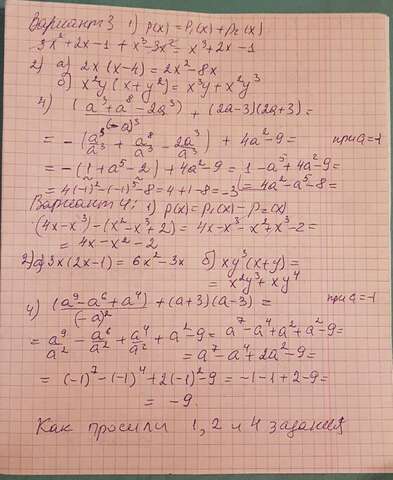 Вариант 3 1) p(x) = p₁(x) + p₂(x)
3x² + 2x - 1 + x³ - 3x² = x³ + 2x - 1
2) a) 2x(x-4) = 2x² - 8x
б) x²y(x+y²) = x³y + x²y³
4) (a³ + a⁸ - 2a³)/(-a)³ + (2a-3)(2a+3) =
= -(a³/a³ + a⁸/a³ - 2a³/a³) + 4a² - 9 = при a=-1
= -(1 + a⁵ - 2) + 4a² - 9 = 1 - a⁵ + 4a² - 9 =
= 4(-1)² - (-1)⁵ - 8 = 4 + 1 - 8 = -3 (= 4a² - a⁵ - 8 =
Вариант 4: 1) p(x) = p₁(x) - p₂(x)
(4x - x³) - (x² - x³ + 2) = 4x - x³ - x² + x³ - 2 =
= 4x - x² - 2
2) a) 3x(2x-1) = 6x² - 3x б) xy³(x+y) =
= x²y³ + xy⁴
4) (a⁹ - a⁶ + a⁴)/(-a)² + (a+3)(a-3) = при a=-1
= a⁹/a² - a⁶/a² + a⁴/a² + a² - 9 = a⁷ - a⁴ + a² + a² - 9 =
= a⁷ - a⁴ + 2a² - 9 =
= (-1)⁷ - (-1)⁴ + 2(-1)² - 9 = -1 - 1 + 2 - 9 =
= -9.
Как просили 1, 2 и 4 задания